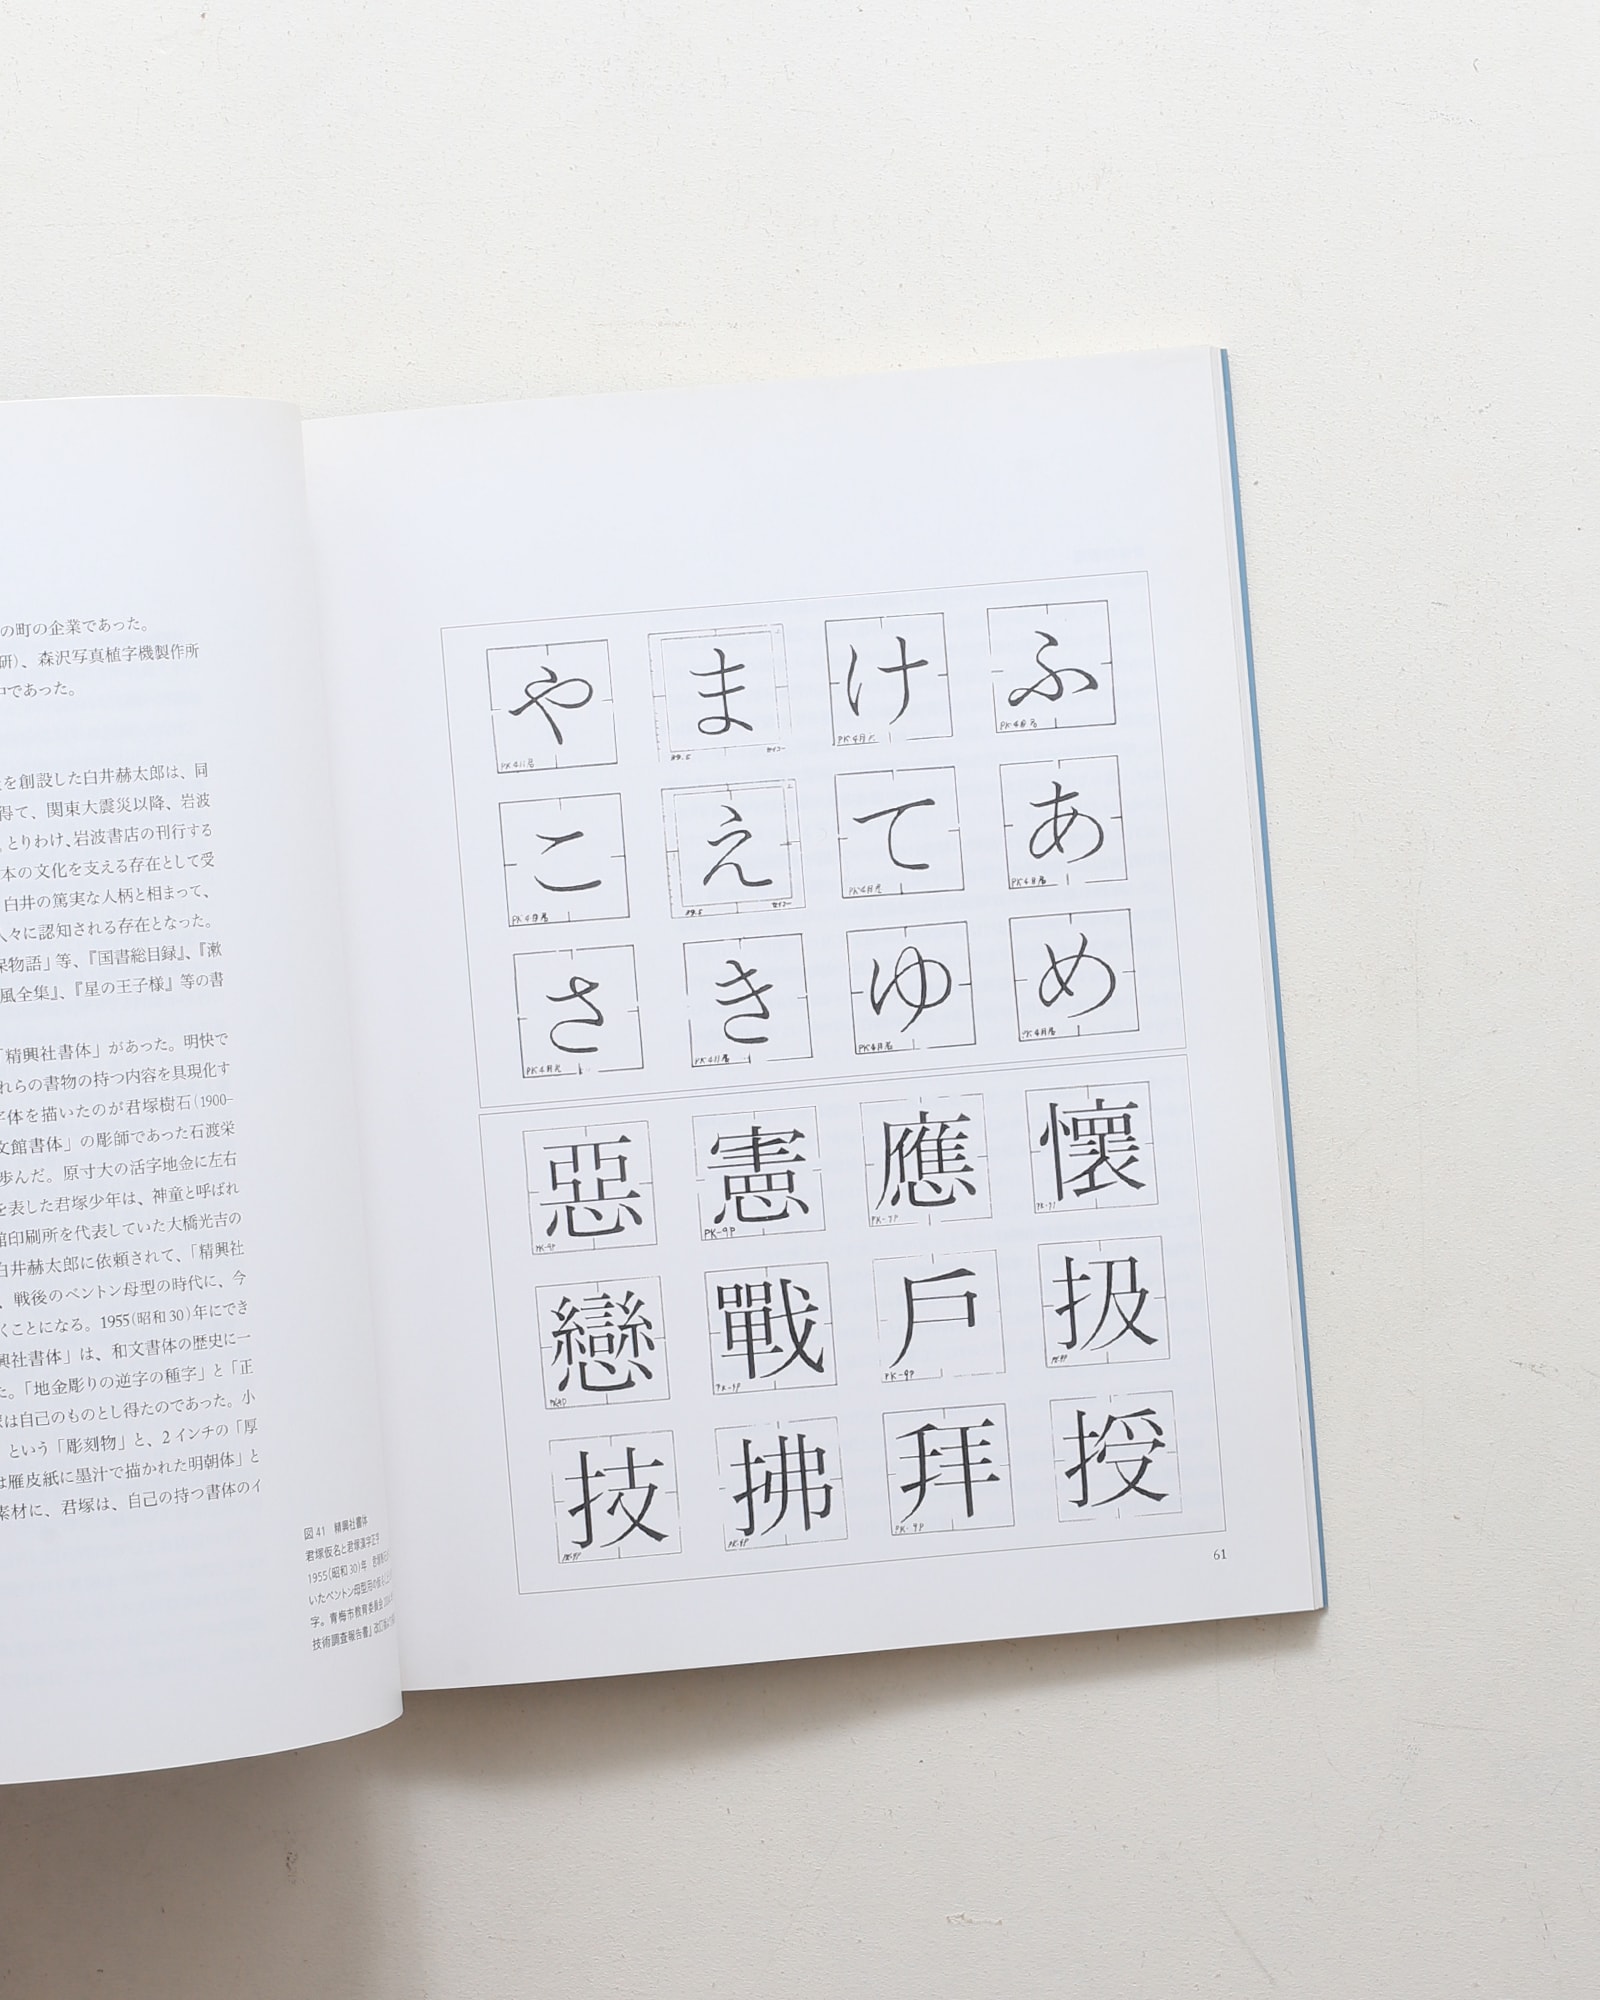 の町の企業であった。
研)、森沢写真植字機製作所
中であった。
を創設した白井赫太郎は、同
得て、関東大震災以降、岩波
。とりわけ、岩波書店の刊行する
本の文化を支える存在として受
白井の篤実な人柄と相まって、
人々に認知される存在となった。
保物語」等、『国書総目録』、『漱
風全集』、『星の王子様』等の書
「精興社書体」があった。明快で
れらの書物の持つ内容を具現化す
字体を描いたのが君塚樹石(1900–
文館書体」の彫師であった石渡栄
歩んだ。原寸大の活字地金に左右
を表した君塚少年は、神童と呼ばれ
館印刷所を代表していた大橋光吉の
白井赫太郎に依頼されて、「精興社
、戦後のベントン母型の時代に、今
くことになる。1955(昭和30)年にでき
興社書体」は、和文書体の歴史に一
た。「地金彫りの逆字の種字」と「正
は自己のものとし得たのであった。小
という「彫刻物」と、2インチの「厚
は雁皮紙に墨汁で描かれた明朝体」と
素材に、君塚は、自己の持つ書体のイ
図41 精興社書体
君塚仮名と君塚漢字正字
1955(昭和30)年
いたベントン母型用の
字。青梅市教育委員会
技術調査報告書』
や ま け ふ
こ え て あ
さ き ゆ め
惡 憲 應 懷
戀 戰 戶 扱
技 拂 拜 授
61